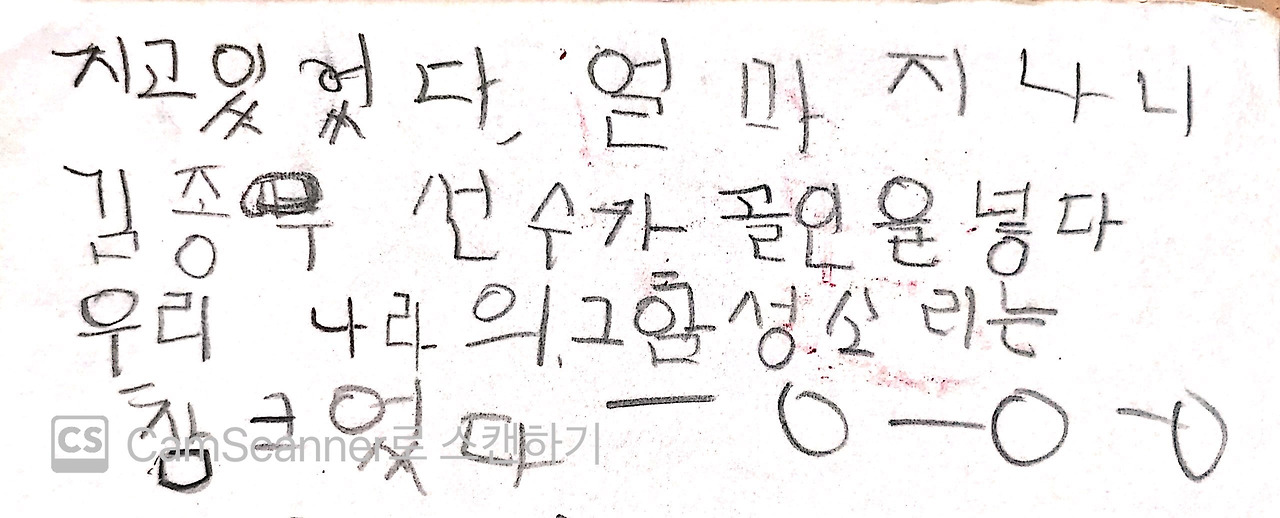 지고있었다, 얼마 지나니
김종부 선수가 골인을 넣다
우리 나라의 그 함성소리는
참 크엿다 ー 0 ー 0 ー 0
CS CamScanner로 스캔하기